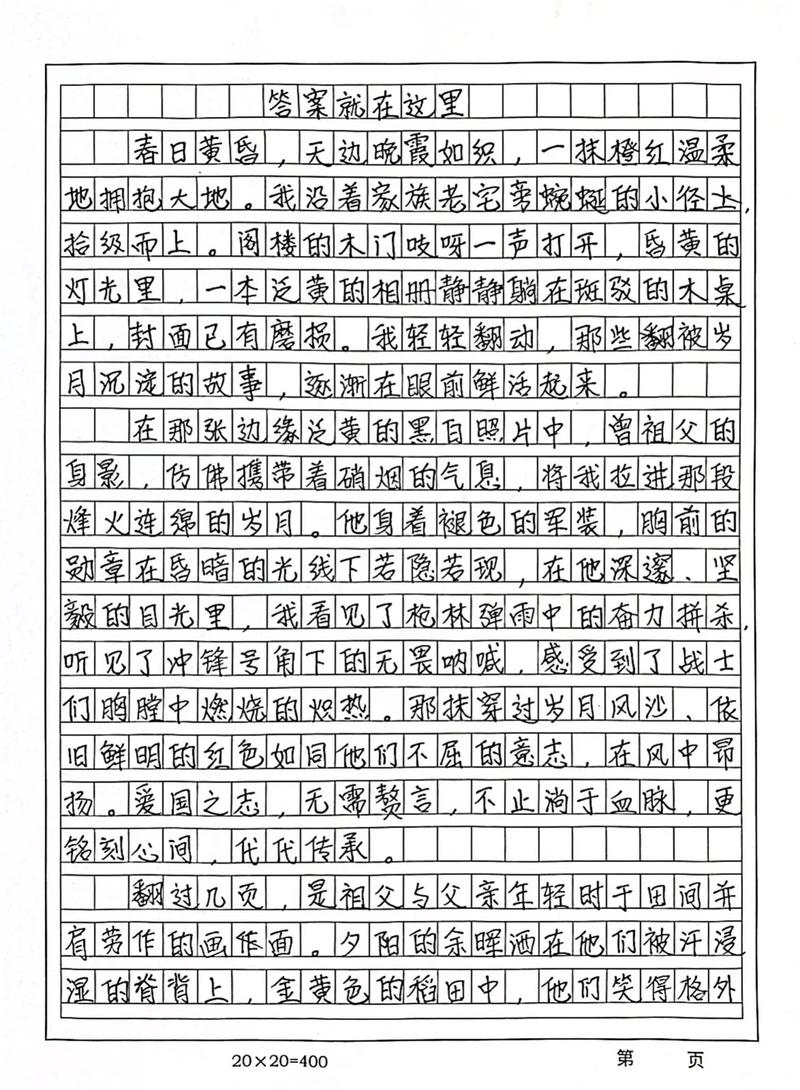 答案就在这里
春日黄昏，天边晚霞如织，一抹橙红温柔
地拥抱大地。我沿着家族老宅旁蜿蜒的小径上，
拾级而上。阁楼的木门吱呀一声打开，昏黄的
灯光里，一本泛黄的相册静静躺在斑驳的木桌
上，封面已有磨损。我轻轻翻动，那些翻被岁
月沉淀的故事，逐渐在眼前鲜活起来。
在那张边缘泛黄的黑白照片中，曾祖父的
身影，仿佛携带着硝烟的气息，将我拉进那段
烽火连绵的岁月。他身着褪色的军装，胸前的
勋章在昏暗的光线下若隐若现，在他深邃、坚
毅的目光里，我看见了枪林弹雨中的奋力拼杀，
听见了冲锋号角下的无畏呐喊，感受到了战士
们胸膛中燃烧的炽热。那抹穿过岁月风沙、依
旧鲜明的红色如同他们不屈的意志，在风中昂
扬。爱国之志，无需赘言，不止淌于血脉，更
铭刻心间，代代传承。
翻过几页，是祖父与父亲年轻时于田间并
肩劳作的画作面。夕阳的余晖洒在他们被汗浸
湿的脊背上，金黄色的稻田中，他们笑得格外
20×20=400 第 页